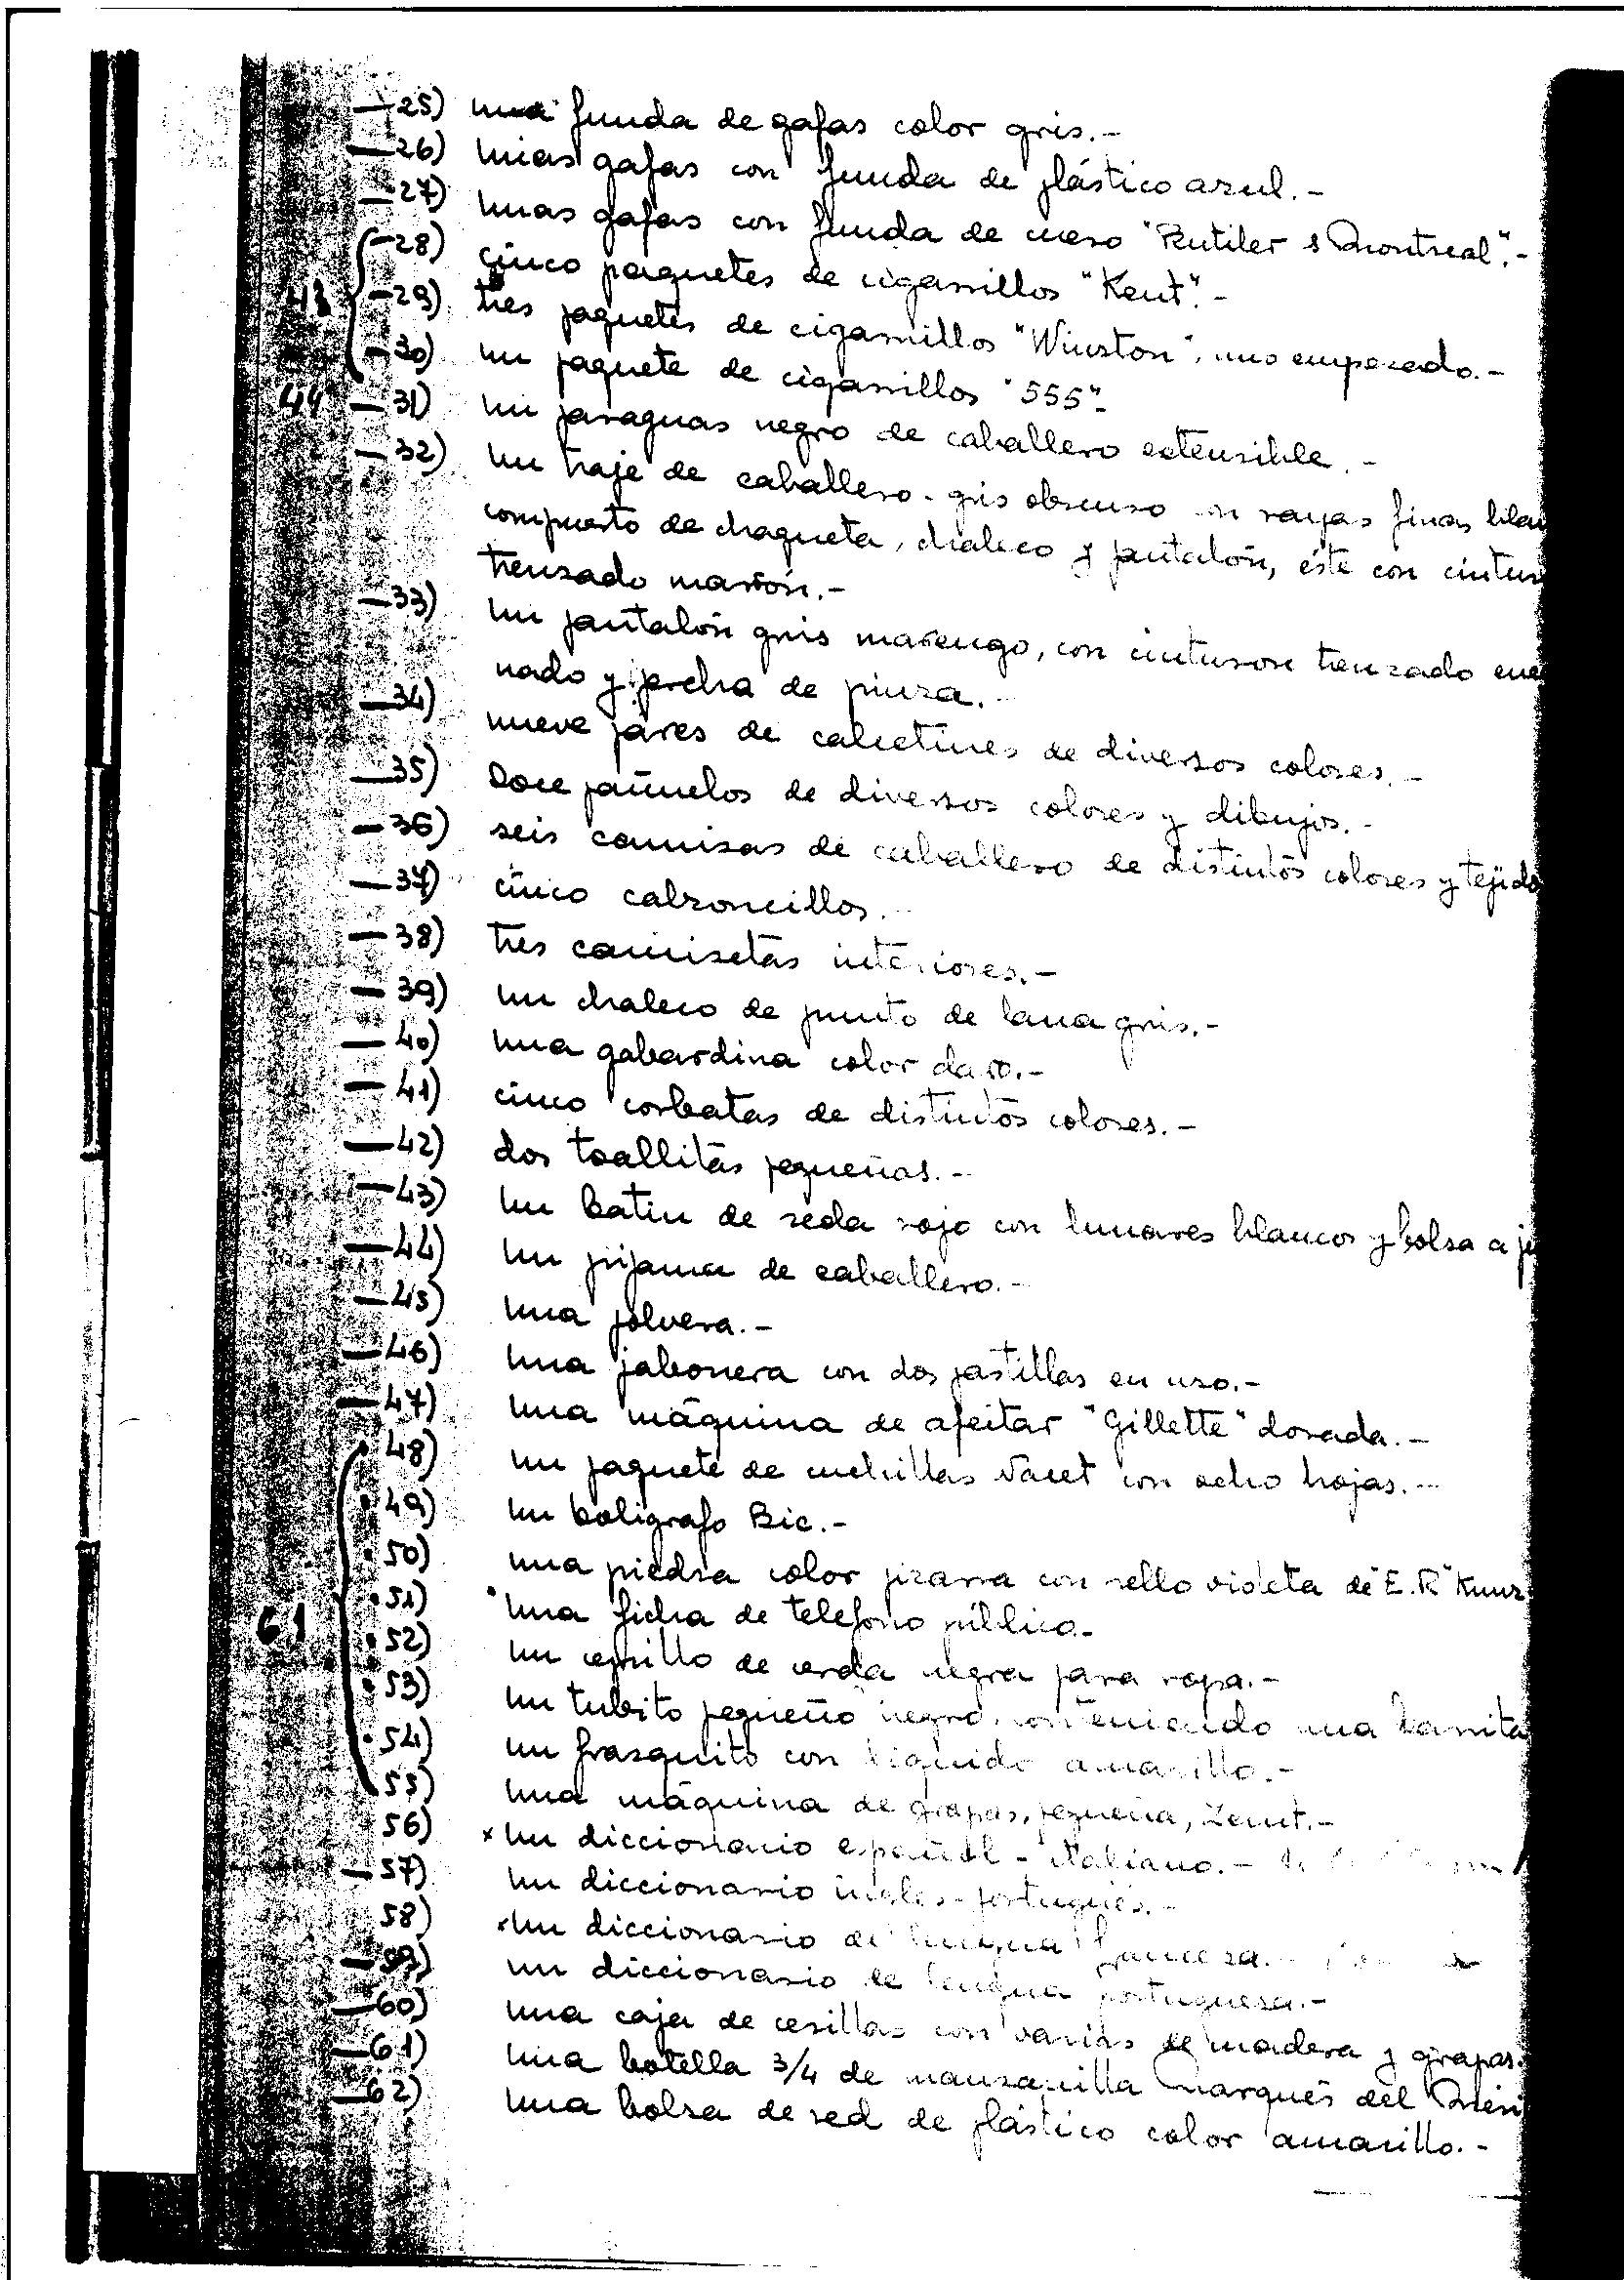 —25) una funda de gafas color gris.-
—26) unas gafas con funda de plástico azul.-
—27) unas gafas con funda de cuero "Rutiler & Montreal".-
—28) cinco paquetes de cigarrillos "Kent".-
—29) tres paquetes de cigarrillos "Winston", uno empezado.-
—30) un paquete de cigarrillos "555".-
44 —31) un paraguas negro de caballero extensible.-
—32) un traje de caballero - gris obscuro con rayas finas blan
compuesto de chaqueta, chaleco y pantalón, éste con cintur
trenzado marrón.-
—33) un pantalón gris marengo, con cinturon trenzado
nado y percha de pinza.-
—34) nueve pares de calcetines de diversos colores.-
—35) Doce pañuelos de diversos colores y dibujos.-
—36) seis camisas de caballero de distintos colores y tejido
—37) cinco calzoncillos.-
—38) tres camisetas interiores.-
—39) un chaleco de punto de lana gris.-
—40) una gabardina color claro.-
—41) cinco corbatas de distintos colores.-
—42) dos toallitas pequeñas.-
—43) un batin de seda rojo con lunares blancos y bolsa a ju
—44) un pijama de caballero.-
—45) una polvera.-
—46) una jabonera con dos pastillas en uso.-
—47) una máquina de afeitar "Gillette" dorada.-
• 48) un paquete de cuchillas Nacet con ocho hojas.-
• 49) un boligrafo Bic.-
• 50) una piedra color pizarra con sello violeta de "E.R" Kunz
61 • 51) una ficha de telefono público.-
• 52) un cepillo de cerda negra para ropa.-
• 53) un tubito pequeño negro, conteniendo una barrita
• 54) un frasquito con liquido amarillo.-
55) una máquina de grapas, pequeña,
56) x un diccionario español - italiano.-
—57) un diccionario ingles-portugués.-
58) x un diccionario de lengua francesa.-
—59) un diccionario de lengua portuguesa.-
—60) una caja de cerillas con varias de madera y grapas.
—61) una botella 3/4 de manzanilla Marqués del
—62) una bolsa de red de plástico color amarillo.-